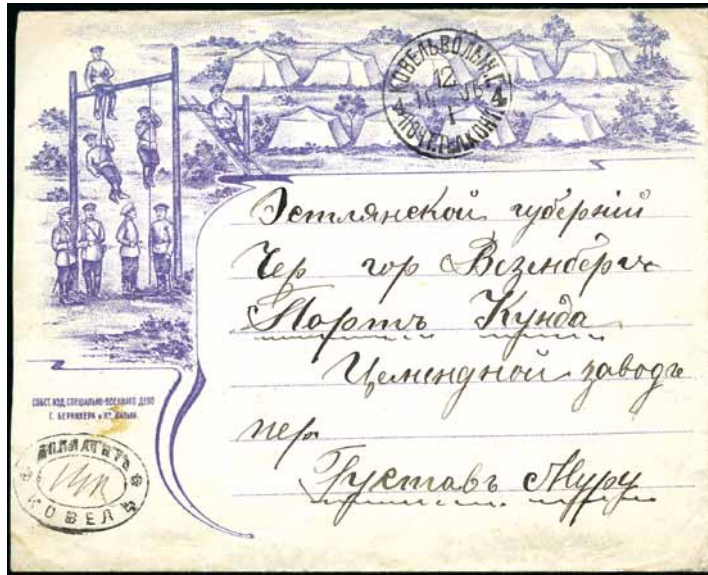 КОВЕЛЬ ВОЛЫН. Г.
12
1
4 ПОЧТ. ТЕЛ. КОНТ. 4
Эстлянской губерніи
Чер гор Везенберг
Портъ Кунда
Цемендной заводъ
пер
Густавъ Муру
СОБСТ. ИЗД. СПЕЦІАЛЬНО-ВОЕННАГО ДЕЛО
Г. БЕРНИКЕРА и К°.
ДОПЛАТИТЬ
КОВЕЛЬ